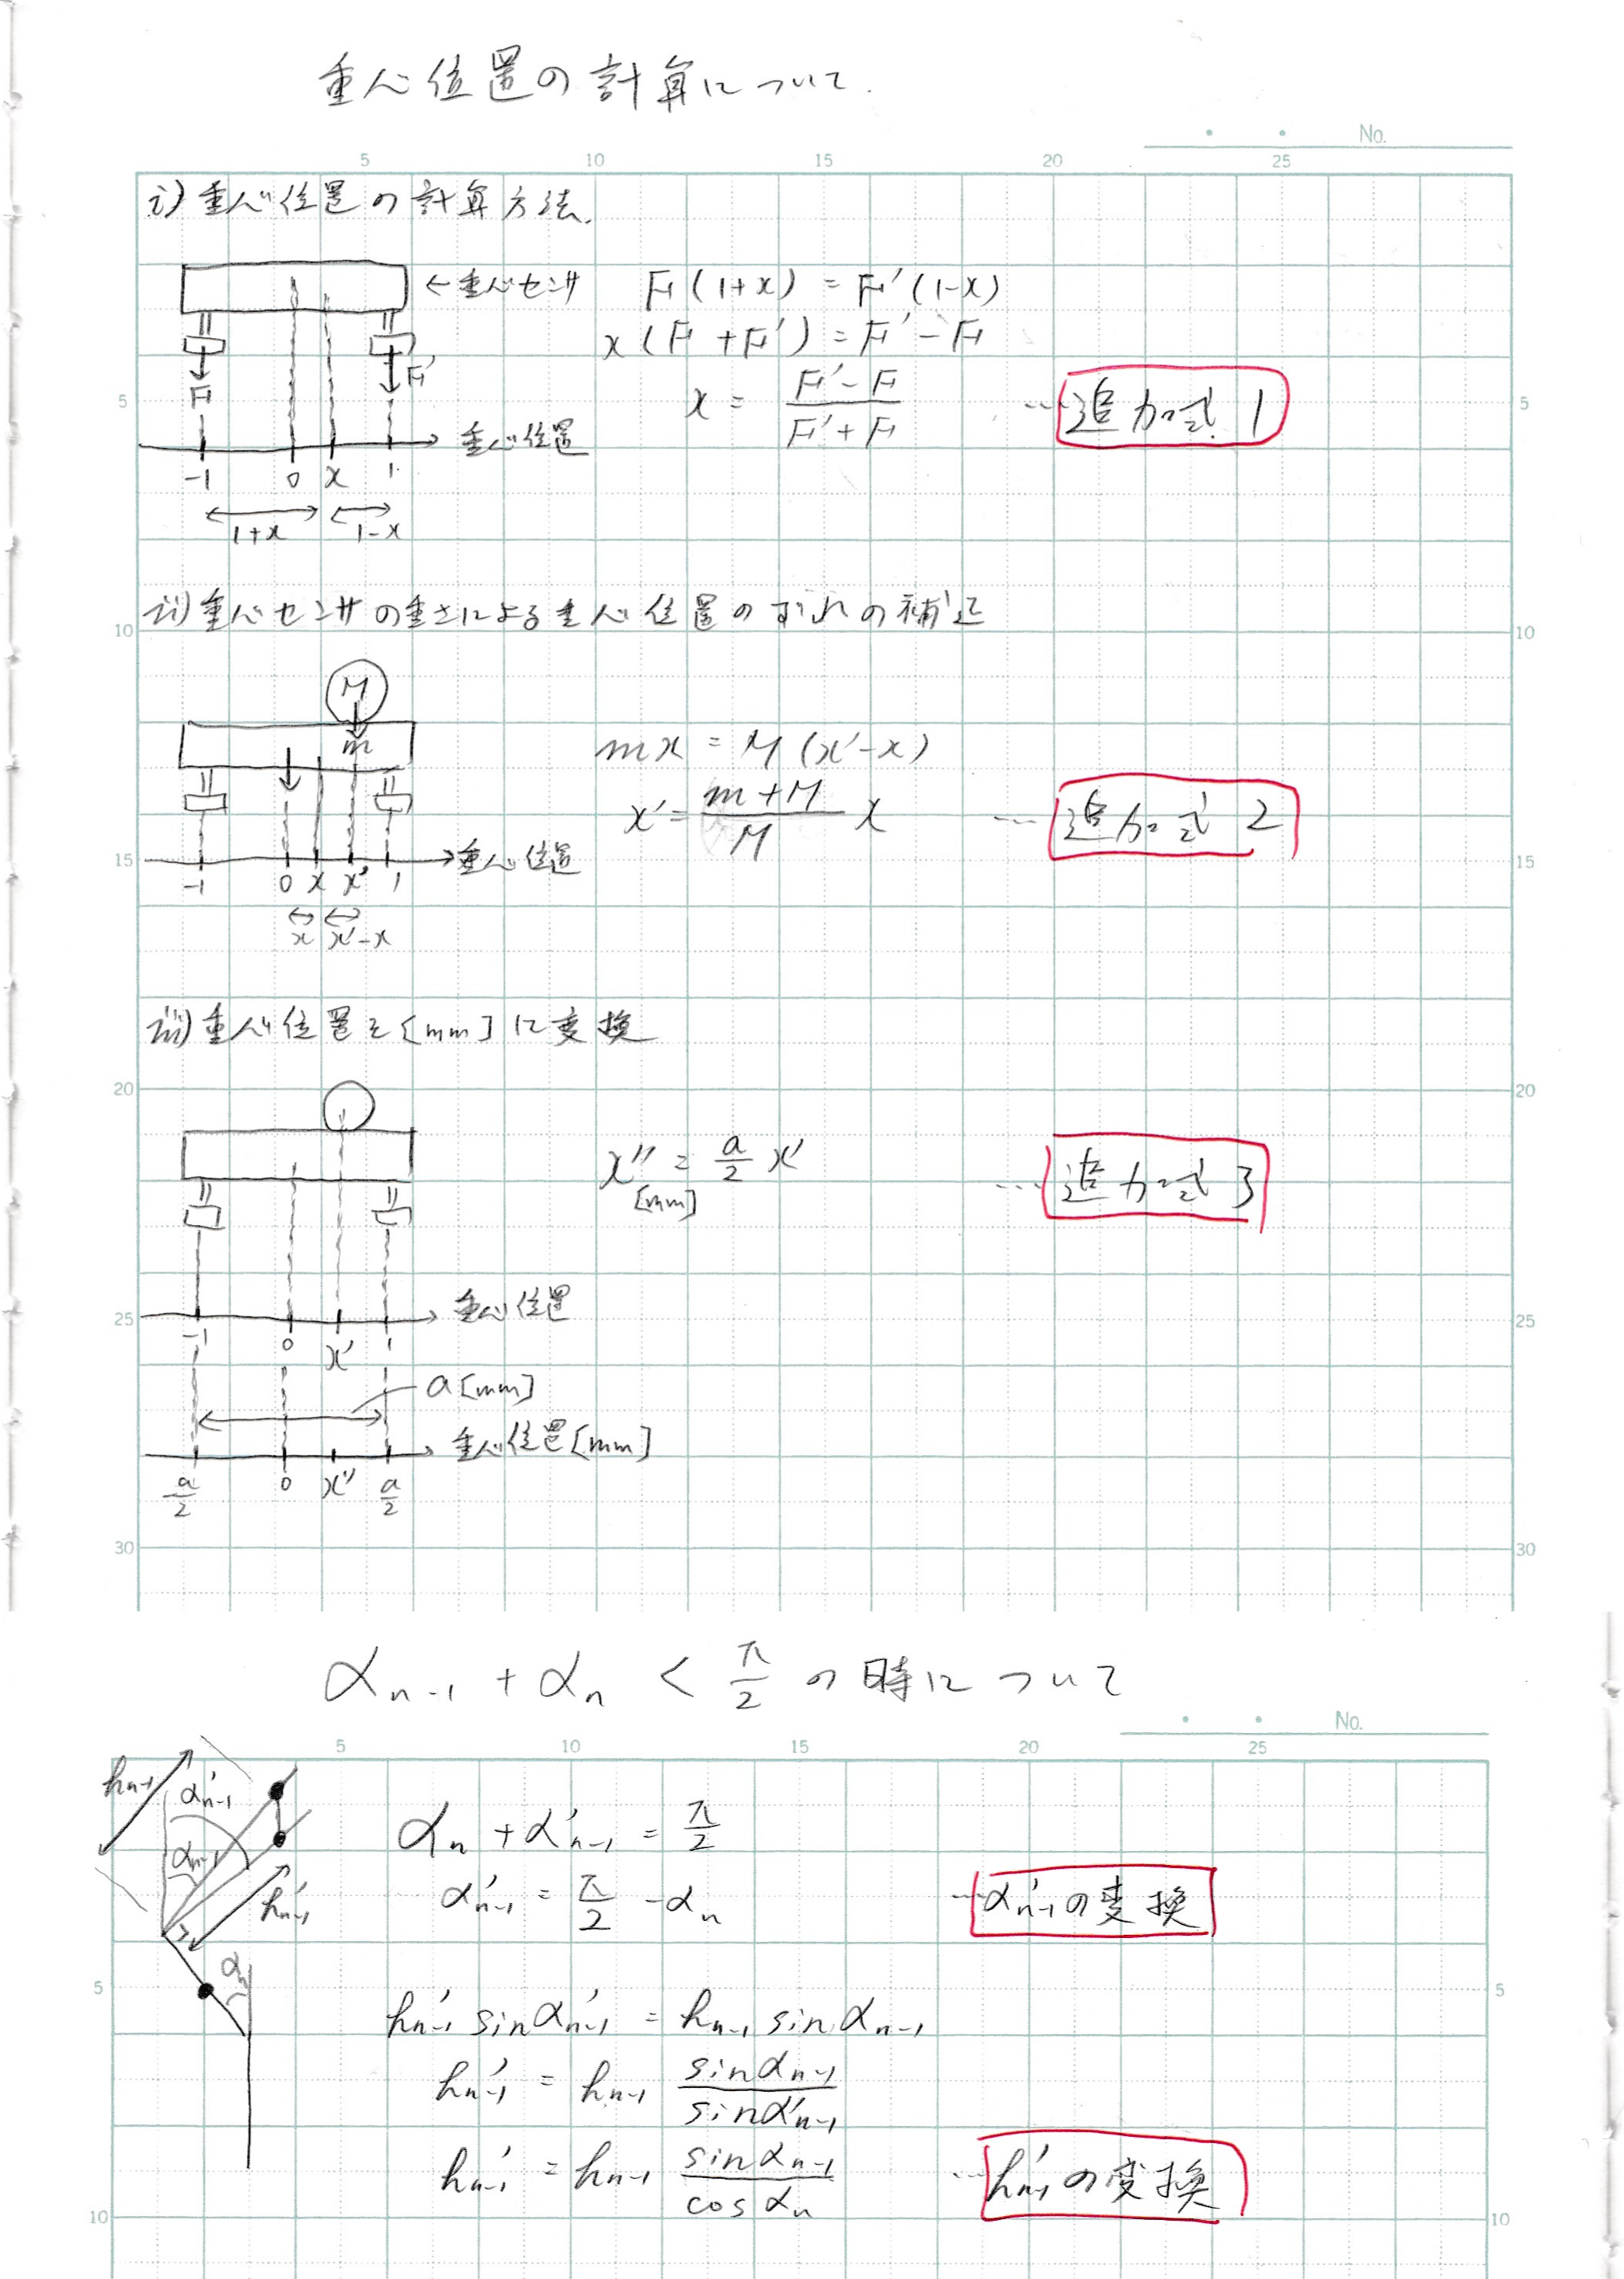 重心位置の計算について.
No.
5 10 15 20 25
i) 重心位置の計算方法.
←重心センサ
F(1+x) = F'(1-x)
x(F+F') = F'-F
x = \frac{F'-F}{F'+F} … 追加式 1
F F'
5 5
重心位置
-1 0 x 1
1+x 1-x
ii) 重心センサの重さによる重心位置のずれの補正
10 10
M
m
mx = M(x'-x)
x' = \frac{m+M}{M} x … 追加式 2
15 重心位置 15
-1 0 x x' 1
x x'-x
iii) 重心位置を[mm]に変換
20 20
x'' = \frac{a}{2} x' … 追加式 3
[mm]
重心位置
25 25
-1 0 x' 1
a[mm]
重心位置[mm]
-\frac{a}{2} 0 x'' \frac{a}{2}
30 30
α_{n-1} + α_n < \frac{π}{2} の時について
No.
5 10 15 20 25
h_{n-1} α'_{n-1}
α_{n-1}
h'_{n-1}
α_n
α_n + α'_{n-1} = \frac{π}{2}
α'_{n-1} = \frac{π}{2} - α_n … α'_{n-1}の変換
5 5
h'_{n-1} sin α'_{n-1} = h_{n-1} sin α_{n-1}
h'_{n-1} = h_{n-1} \frac{sin α_{n-1}}{sin α'_{n-1}}
h'_{n-1} = h_{n-1} \frac{sin α_{n-1}}{cos α_n} … h'_{n-1}の変換
10 10